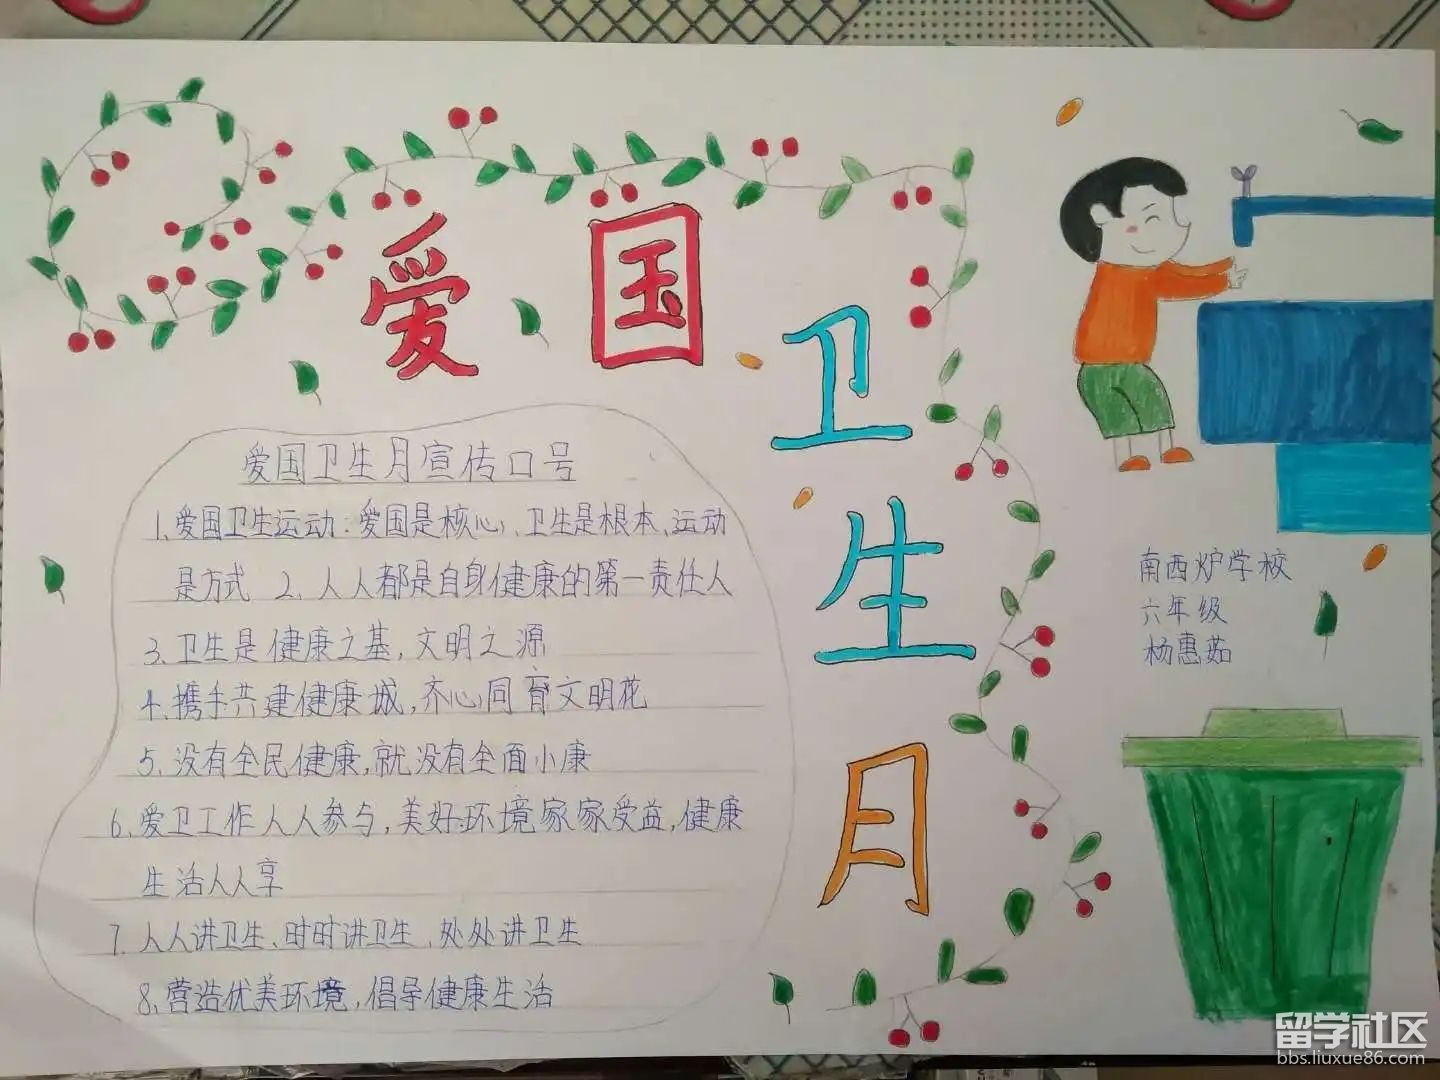 爱国卫生月
爱国卫生月宣传口号
1、爱国卫生运动：爱国是核心、卫生是根本、运动
是方式 2、人人都是自身健康的第一责任人
3、卫生是健康之基，文明之源
4、携手共建健康城，齐心同育文明花
5、没有全民健康，就没有全面小康
6、爱卫工作人人参与，美好环境家家受益，健康
生活人人享
7、人人讲卫生、时时讲卫生、处处讲卫生
8、营造优美环境，倡导健康生活
南西炉学校
六年级
杨惠茹
留学社区
bbs.liuxue86.com